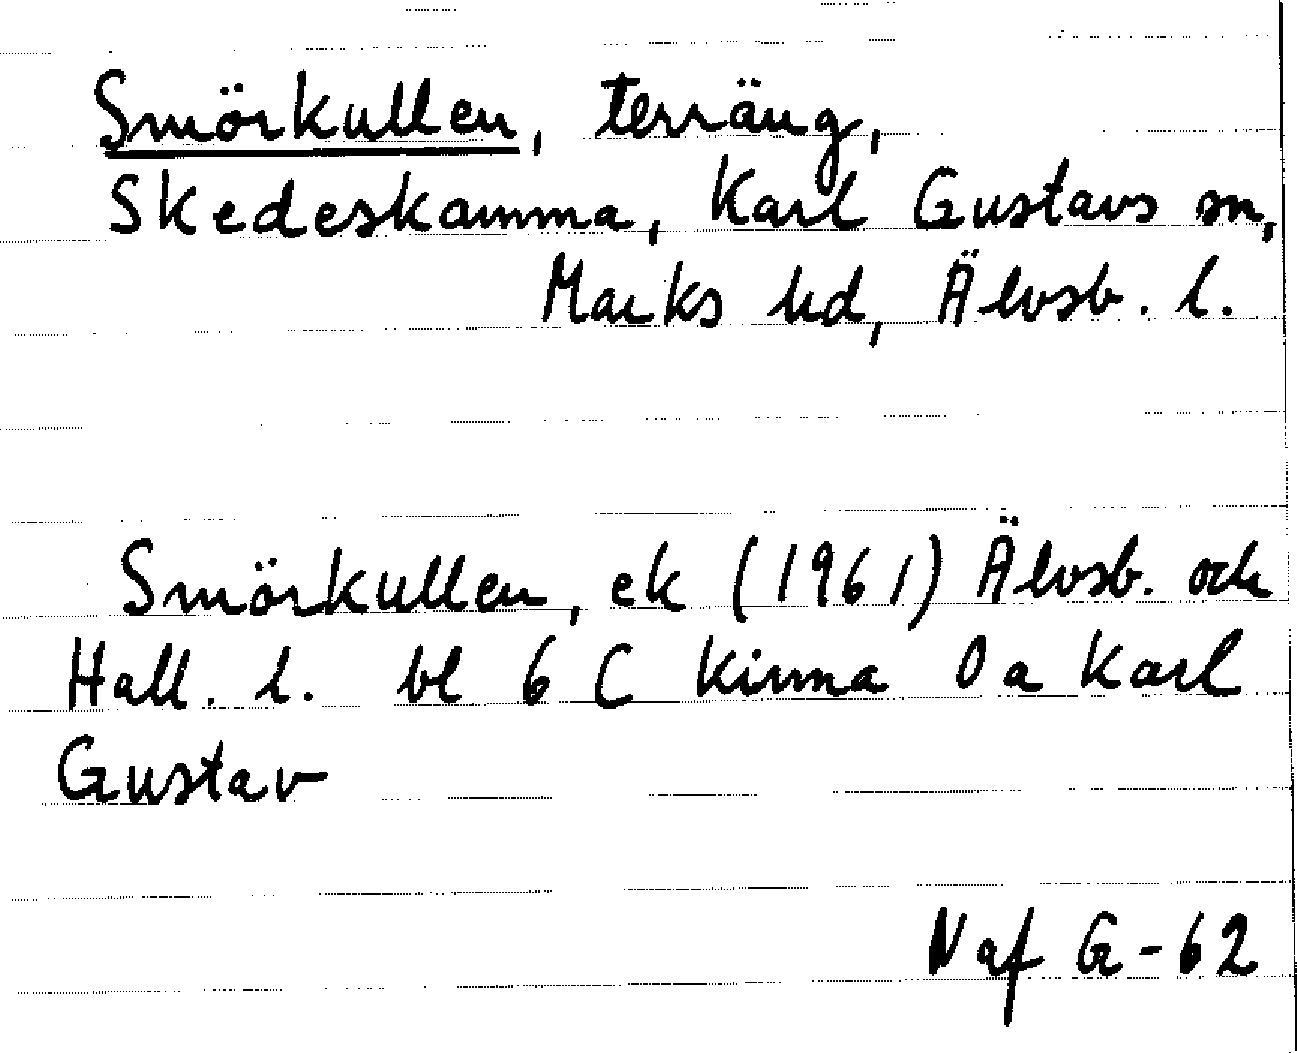 Smörkullen, terräng,
Skedeskamma, Karl Gustavs sn,
Marks hd, Älvsb. l.
Smörkullen, ek (1961) Älvsb. och
Hall. l. bl 6 C Kinna 0 a Karl
Gustav
Naf G-62